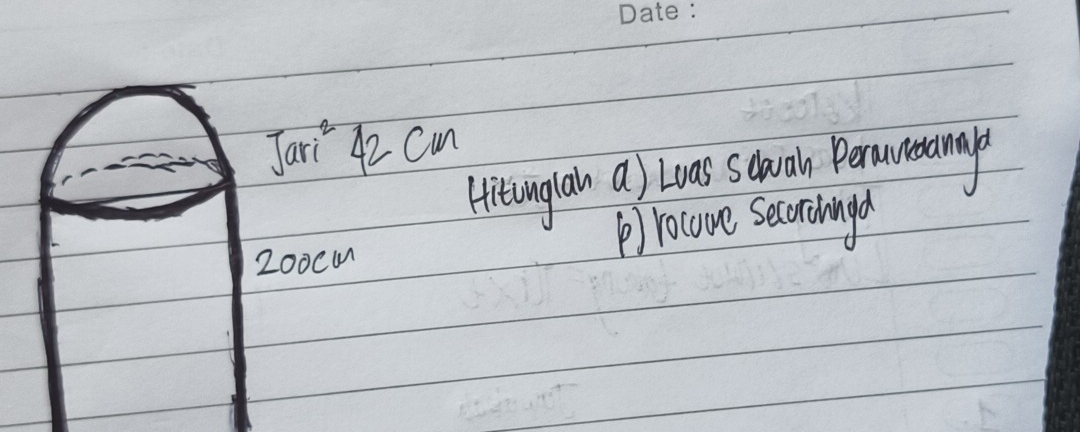 Date :
Jari² 42 Cm
Hitunglah a) Luas Seluruh Permukaannya
b) Volume Seluruhnya
200cm